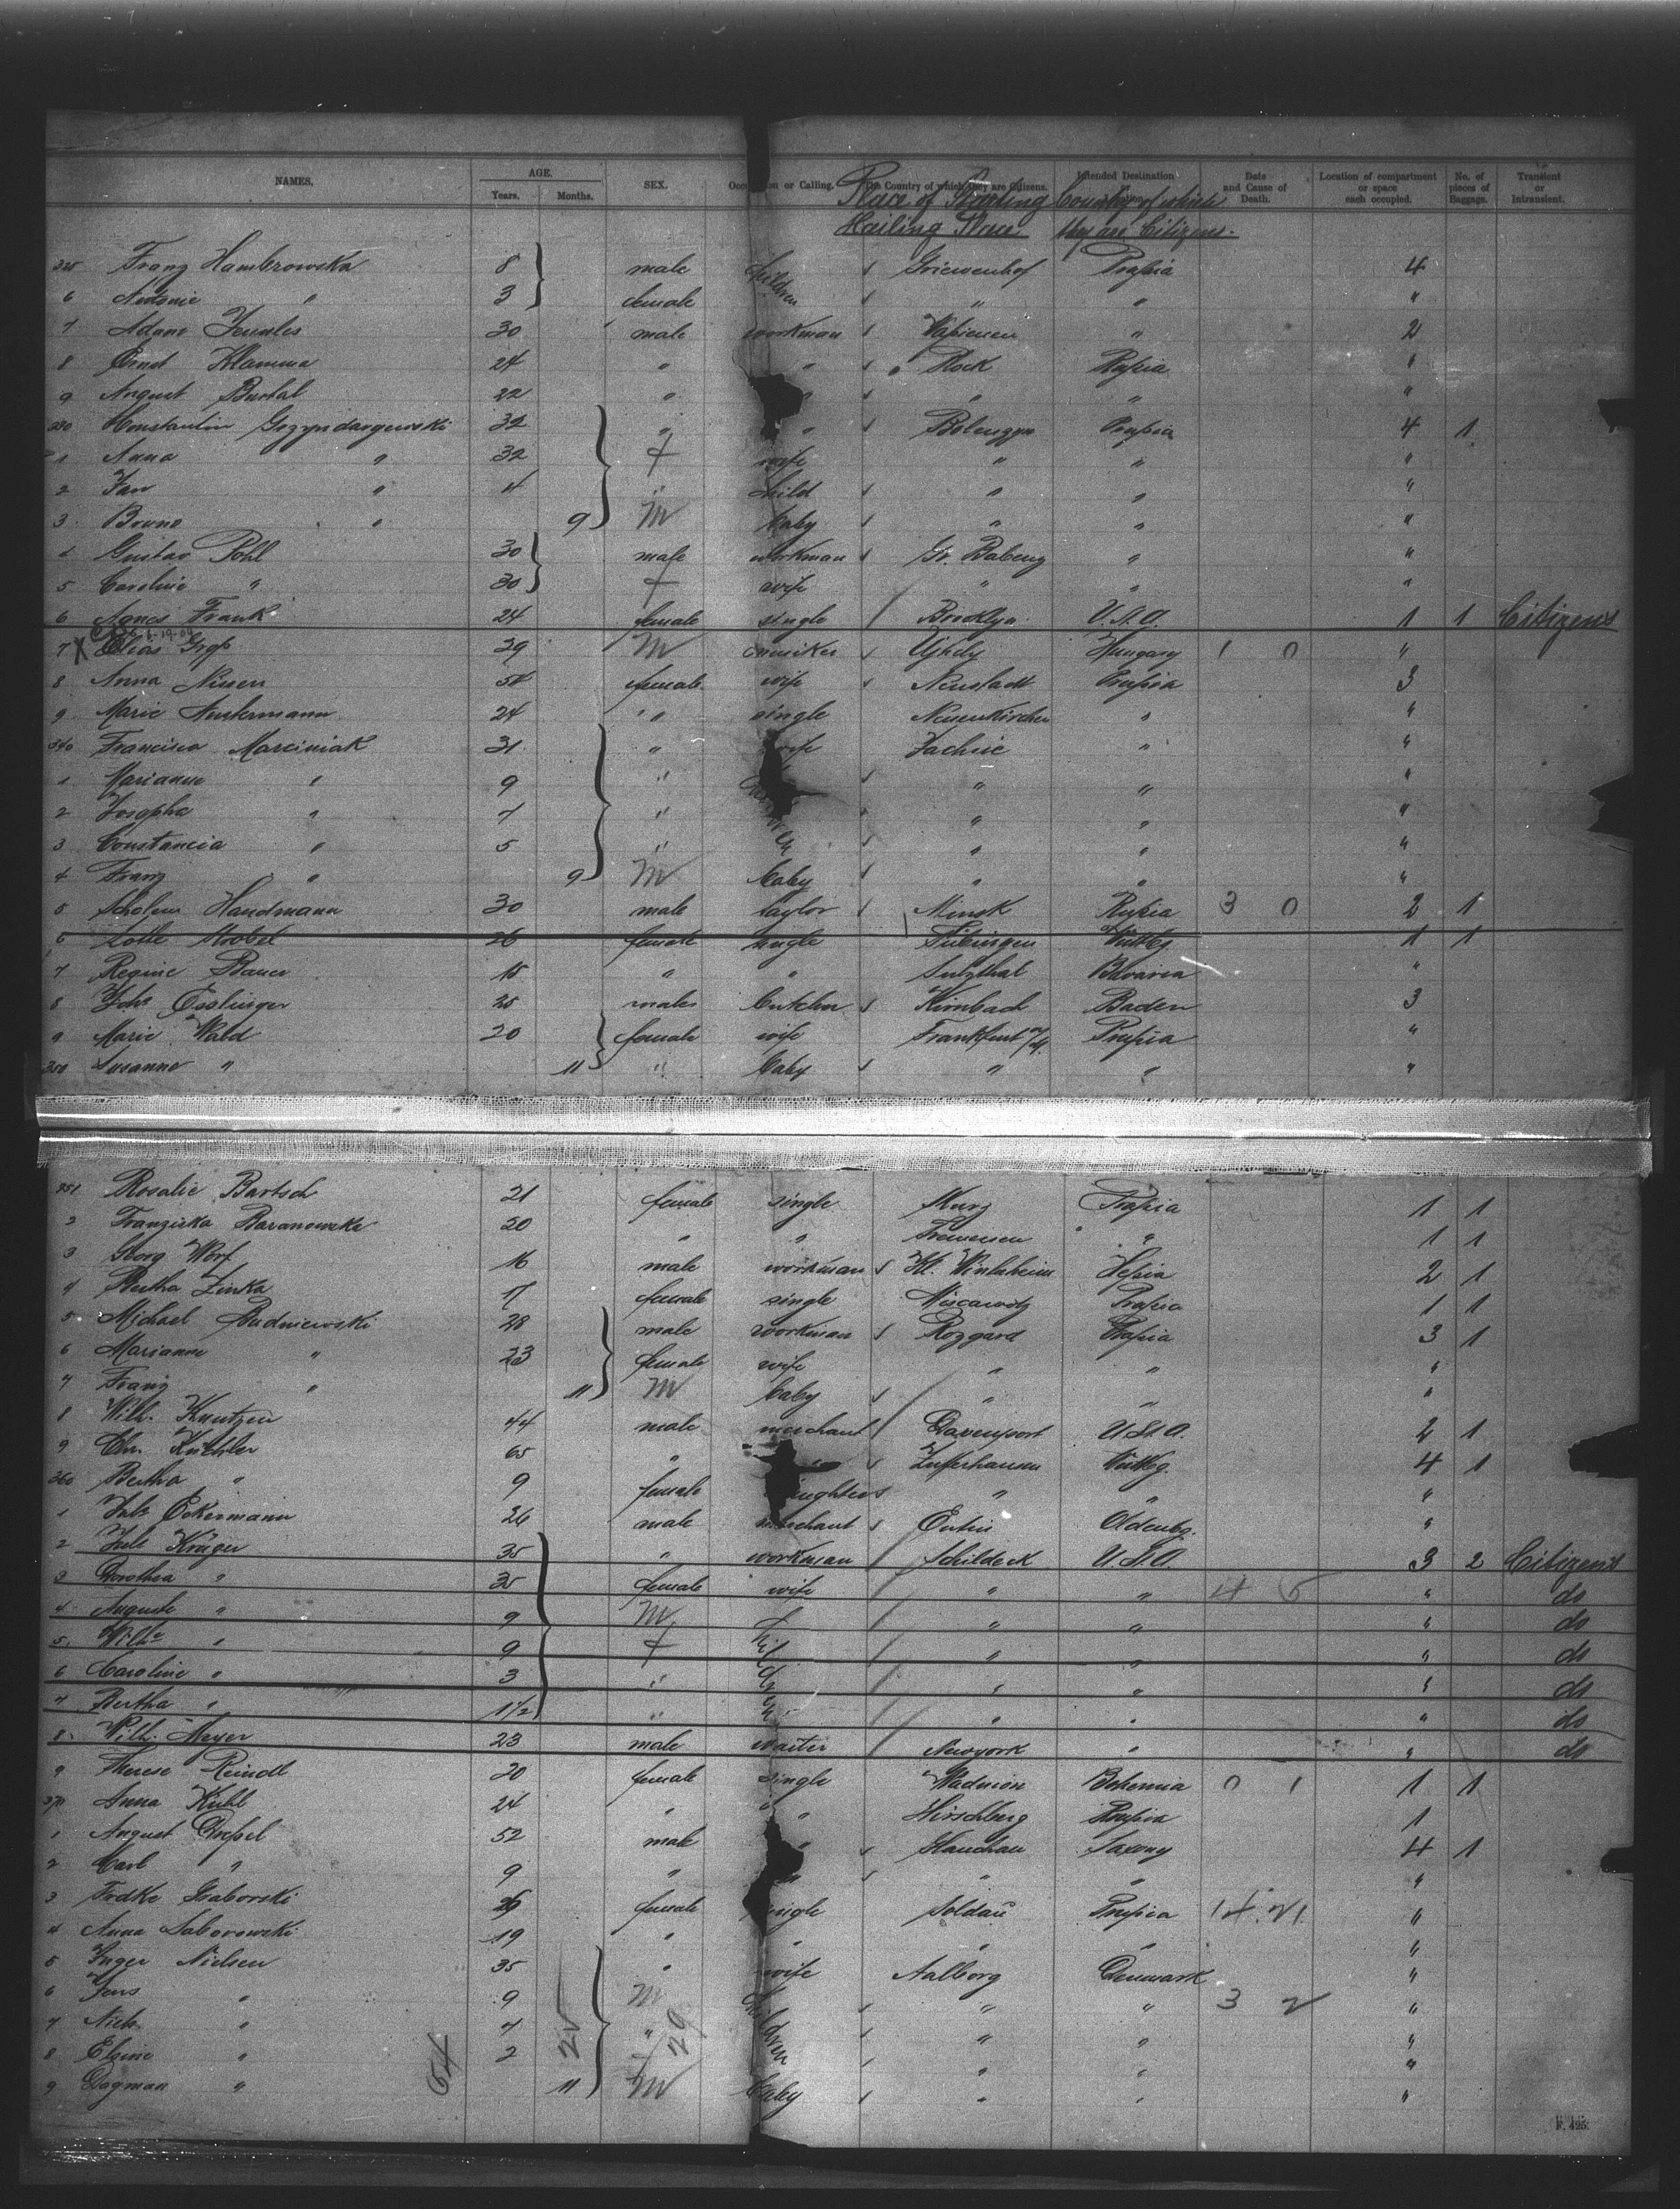 NAMES. AGE. SEX. Occupation or Calling. The Country of which they are Citizens. Intended Destination or Date and Cause of Death. Location of compartment or space each occupied. No. of pieces of Baggage. Transient or Intransient.
Years. Months. Place of Starting Country of which
Hailing Place they are Citizens.
325 Franz Hambrowska 8 male children Griewenhof Prussia 4
6 Antonie " 3 female " " "
7 Adam 30 male workman " 2
8 Ernst Klamme 24 " " Plock Russia "
9 August 22 " " " " "
330 Constantin 32 " " Prussia 4 1
1 Anna " 32 f wife " " "
2 Jan " 4 " child " " "
3 Bruno " 9 M baby " " "
4 Gustav Pohl 30 male workman Gr. " "
5 Caroline " 30 f wife " " "
6 Agnes Frank 24 female single Brooklyn U.S.A. 1 1 Citizens
7 X Elias 29 M Ujhely Hungary 1 0 "
8 Anna Nissen 54 female wife Neustadt Prussia 3
9 Marie 24 " single Neuenkirchen " "
340 Francisca Marciniak 31 " wife " "
1 Marianne " 9 " children " " "
2 Josepha " 7 " " " "
3 Constancia " 5 " " " "
4 Franz " 9 M baby " " "
5 Scholem Handmann 30 male taylor Minsk Russia 3 0 2 1
6 Lotte Strobel 26 female single Tübingen Wüttbg 1 1
7 Regine Bauer 18 " " Sulzthal Bavaria "
8 Johs Esslinger 25 male butcher Kirnbach Baden 3
9 Marie Wald 20 female wife Frankfurt Prussia "
350 Susanne " 11 " baby " " "
351 Rosalie Bartsch 21 female single Prussia 1 1
2 Franziska Baranowska 20 " " " 1 1
3 Georg 16 male workman Hessia 2 1
4 Bertha 17 female single Prussia 1 1
5 Michael Budniewski 28 male workman Prussia 3 1
6 Marianne " 23 female wife " " "
7 Franz " 11 M baby " " "
8 Wilh. Knutzen 44 male merchant Davenport U.S.A. 2 1
9 Chr. Küchler 65 " " Zuffenhausen Wüttbg. 4 1
360 Bertha " 9 female daughter " " "
1 Johs Eckermann 26 male merchant Eutin Oldenbg. "
2 Jul. Krüger 35 " workman Schildeck U.S.A. 3 2 Citizens
3 Dorothea " 35 female wife " " 4 5 " do
4 Auguste " 9 M children " " " do
5 Wilh. " 9 f " " " do
6 Caroline " 3 " " " " do
7 Bertha " 1 1/2 " " " " do
8 Wilh. Meyer 23 male waiter Newyork " " do
9 Therese Reindl 20 female single Bohemia 0 1 1 1
370 Anna Kühl 24 " " Hirschberg Prussia 1
1 August Dressel 52 male " Glauchau Saxony 4 1
2 Carl " 9 " " " " "
3 29 female single Soldau Prussia 14 21 "
4 Anna 19 " " " " "
5 Inger Nielsen 35 " wife Aalborg Denmark "
6 Jens " 9 M children " " 3 2 "
7 Niels " 7 " " " "
8 " 2 f " " "
9 Dagmar " 11 M baby " " "
54 25 29